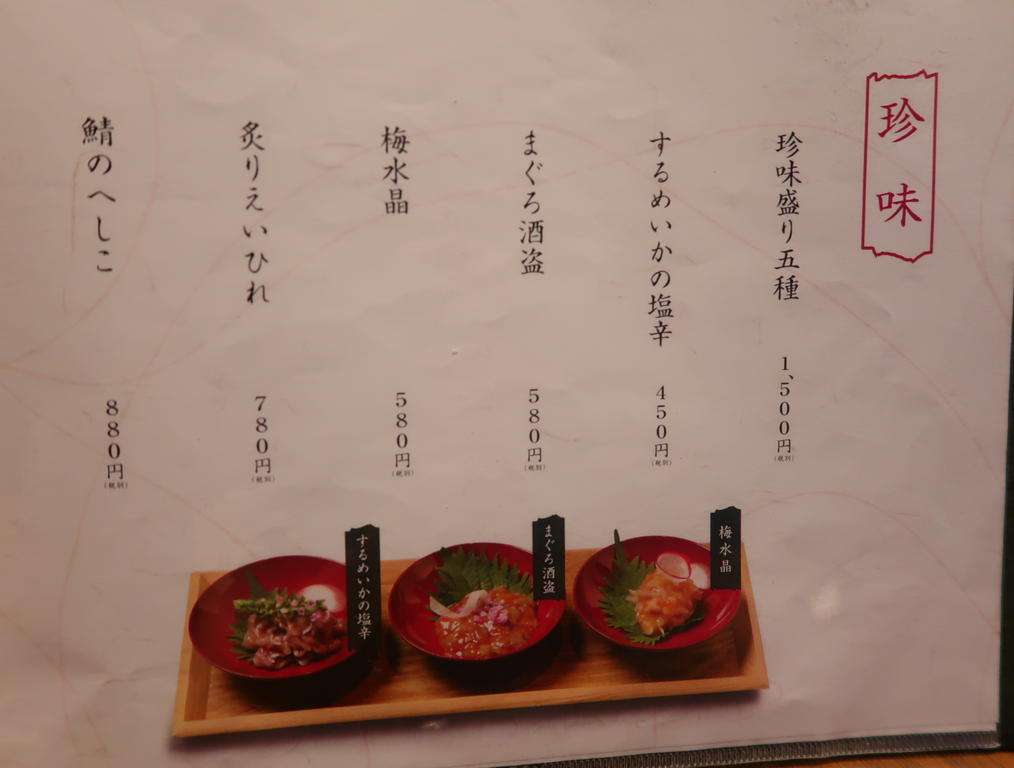 珍味
珍味盛り五種
1,500円
(税別)
するめいかの塩辛
450円
(税別)
まぐろ酒盗
580円
(税別)
梅水晶
580円
(税別)
炙りえいひれ
780円
(税別)
鯖のへしこ
880円
(税別)
梅水晶
まぐろ酒盗
するめいかの塩辛